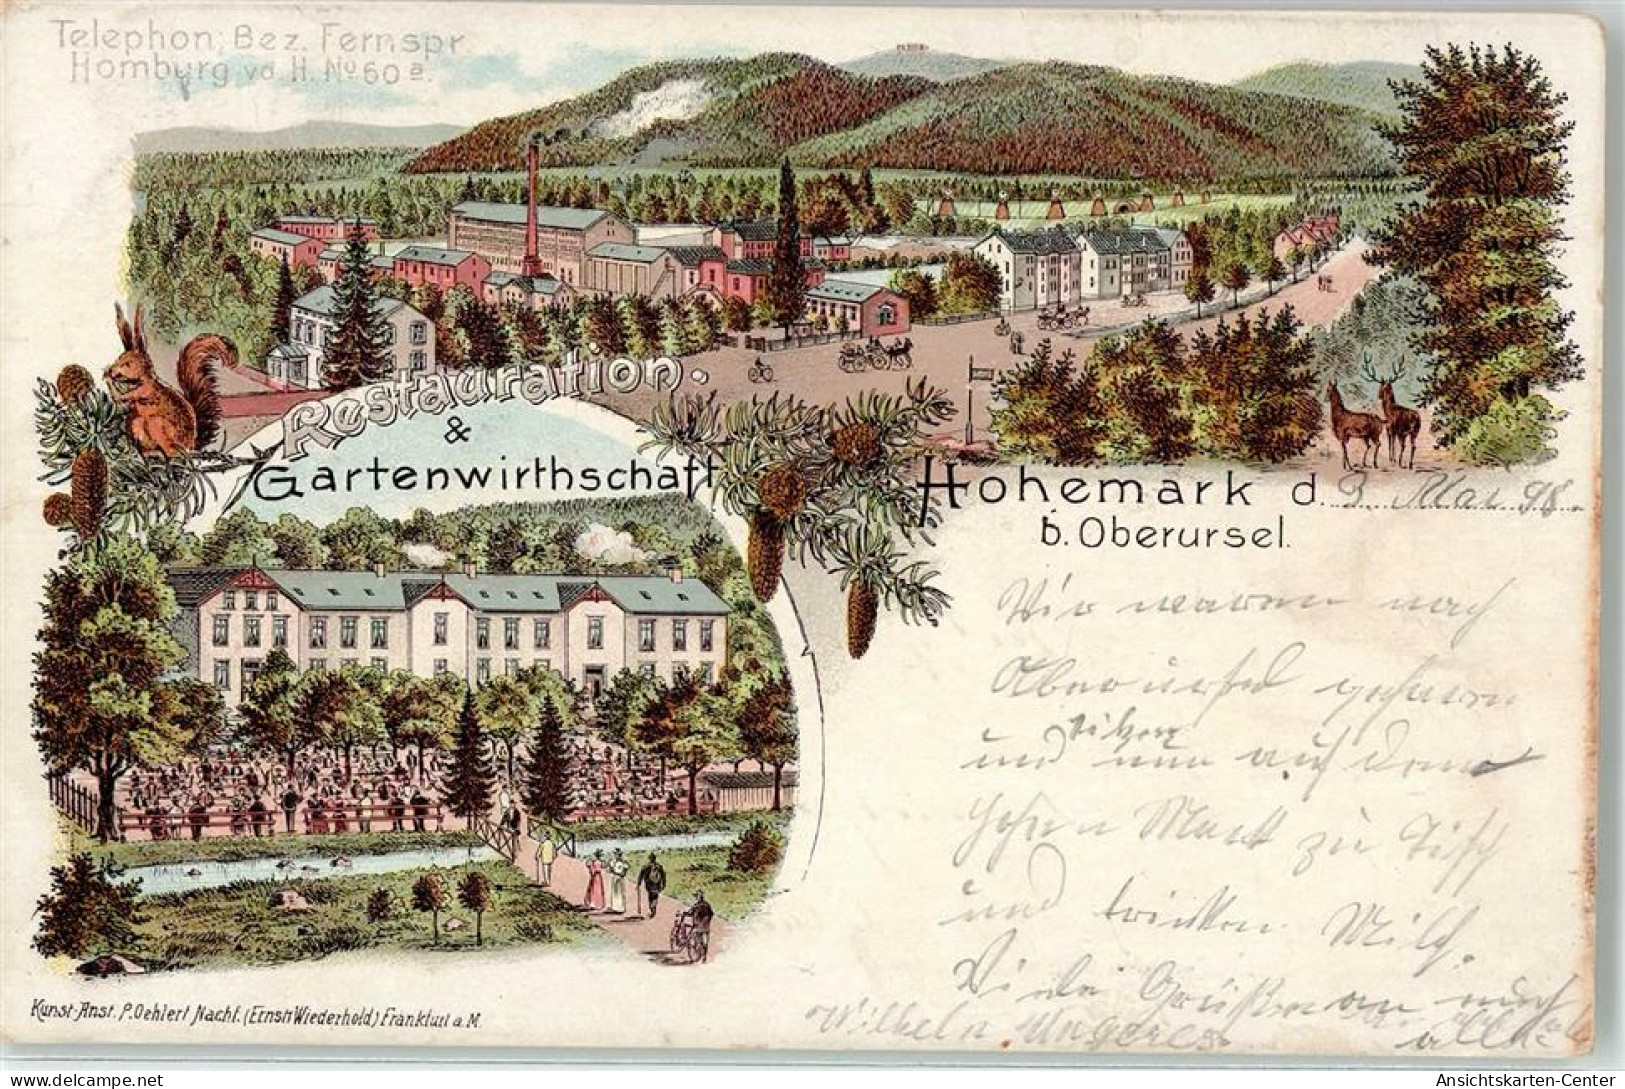 Telephon; Bez. Fernspr.
Homburg v. d. H. No 60 a.
Restauration.
&
Gartenwirthschaft
Hohemark d. 3. Mai 98.
b. Oberursel.
Wir waren nach
Oberursel gefahren
und nun sitzen auf dem
Hohen Mark zu Tisch
und trinken Milch.
Viele Grüße an euch
alle
Wilhelm
Kunst-Anst. P. Oehlert Nachf. (Ernst Wiederhold) Frankfurt a. M.
delcampe.net
Ansichtskarten-Center